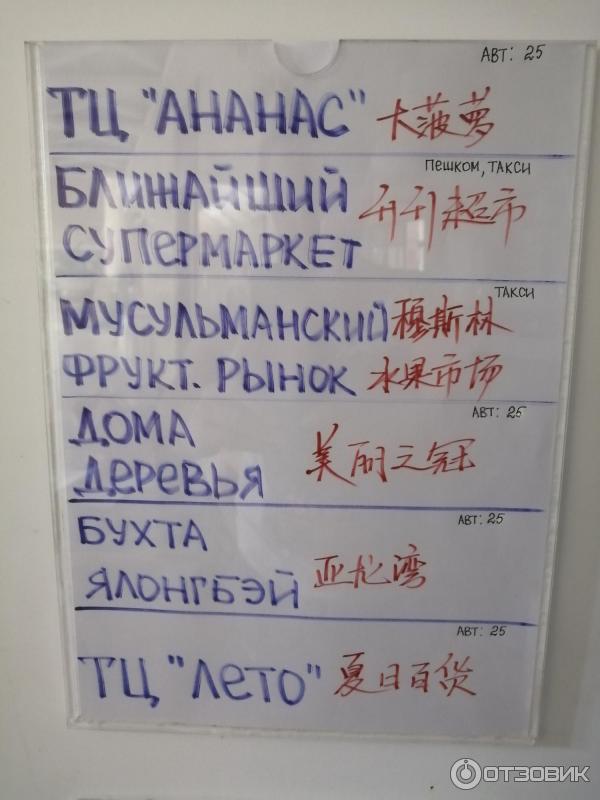 АВТ: 25
ТЦ "АНАНАС" 大菠萝
ПЕШКОМ, ТАКСИ
БЛИЖАЙШИЙ
СУПЕРМАРКЕТ 超市
ТАКСИ
МУСУЛЬМАНСКИЙ 穆斯林
ФРУКТ. РЫНОК 水果市场
АВТ: 25
ДОМА
ДЕРЕВЬЯ 美丽之冠
АВТ: 25
БУХТА
ЯЛОНГБЭЙ 亚龙湾
АВТ: 25
ТЦ "ЛЕТО" 夏日百货
ОТЗОВИК